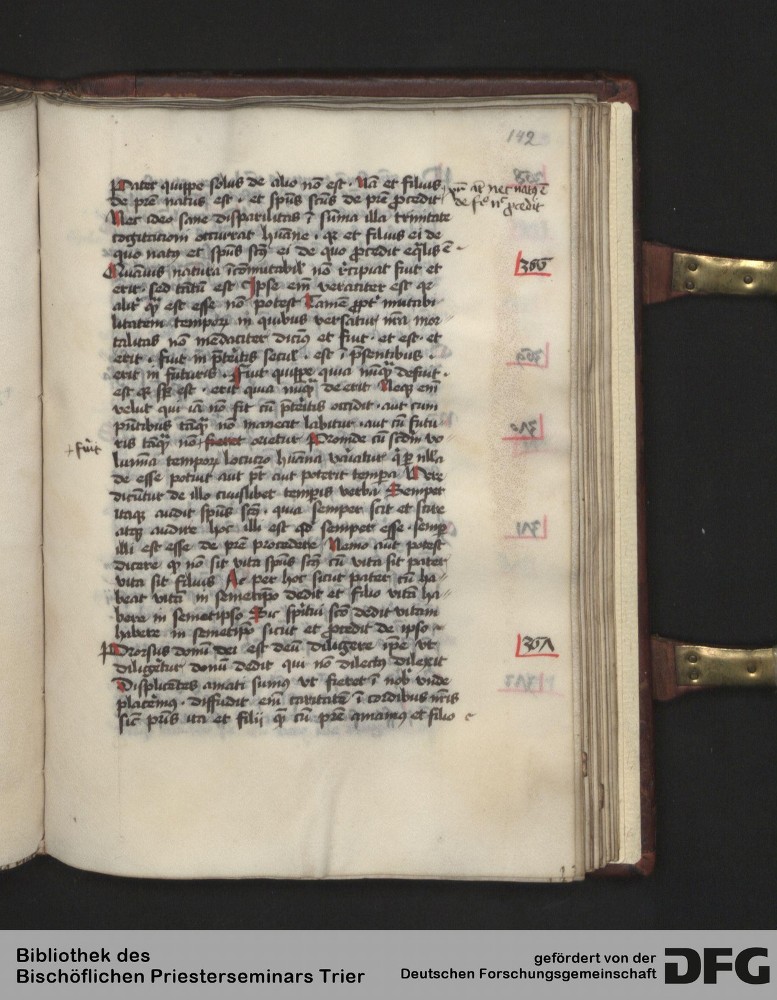 142
Pater quippe solus de alio nō est · Nā et filius
de p̄re natus est · et sp̄us scūs de p̄re ꝓcedit
Nec ideo sane disparilitas ī suma illa trinitate
cogitacioni occurrat hūane · qꝛ et filius ei de
quo natꝰ et sp̄us scūs ei de quo ꝓcedit eq̄lis ē ·
366
Quāuis natura īcōmutabil' nō r̄cipiat fuit et
erit · sed tm̄ est Ipse em̄ veraciter est qꝛ
alit' qꝫ est esse nō potest Tamē ꝓpt' mutabi
litatem temporū in quibus versatur nr̄a mor
talitas nō mēdaciter dicimꝰ et fuit · et est · et
erit · fuit in p̄teritis seculis · est ī p̄sentibus ·
erit in futuris · Fuit quippe quia nūqꝫ defuit ·
est qꝛ sꝑ est · erit quia nūqꝫ deerit Neqꝫ em̄
velut qui iā nō sit cū p̄teritis occidit · aut cum
p̄ntibus tāqꝫ nō maneat labitur · aut cū futu
+ fu'it
ris tāqꝫ nō fieret orietur Proinde cū scdm̄ vo
lumīa temporū locucio hūana variatur q̄ ꝑ nulla
de esse potuit aut p̄t aut poterit tempora Vere
dicūtur de illo cuiuslibet temporis verba Semper
itaqꝫ audit sp̄us scūs · quia semper scit et scire
atqꝫ audire hoc illi est qd̄ semper esse · semꝑ
illi est esse de p̄re procedere Nemo aut potest
dicere qꝫ nō sit vita sp̄us scūs cū vita sit pater
vita sit filius Ac per hoc sicut pater cū ha
beat vitā in semetip̄o dedit et filio vitā ha
bere in semetipso Sic sp̄itui scō dedit vitam
habere in semetip̄o sicut et ꝓcedit de ipso
367
Prorsus donū dei est deū diligere ip̄e vt
diligeretur donū dedit qui nō dilectꝰ dilexit
Displicētes amati sumꝰ vt fieret ī nobis vnde
placerēmꝰ · diffudit em̄ caritatē ī cordibus nr̄is
sp̄us p̄ris et filij quē cū p̄re amamꝰ et filio
Bibliothek des
Bischöflichen Priesterseminars Trier
gefördert von der
Deutschen Forschungsgemeinschaft
DFG